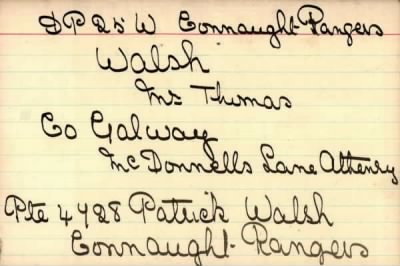 DP 25 W Connaught Rangers
Walsh
Mr Thomas
Co Galway
McDonnells Lane Athenry
Pte 4728 Patrick Walsh
Connaught Rangers